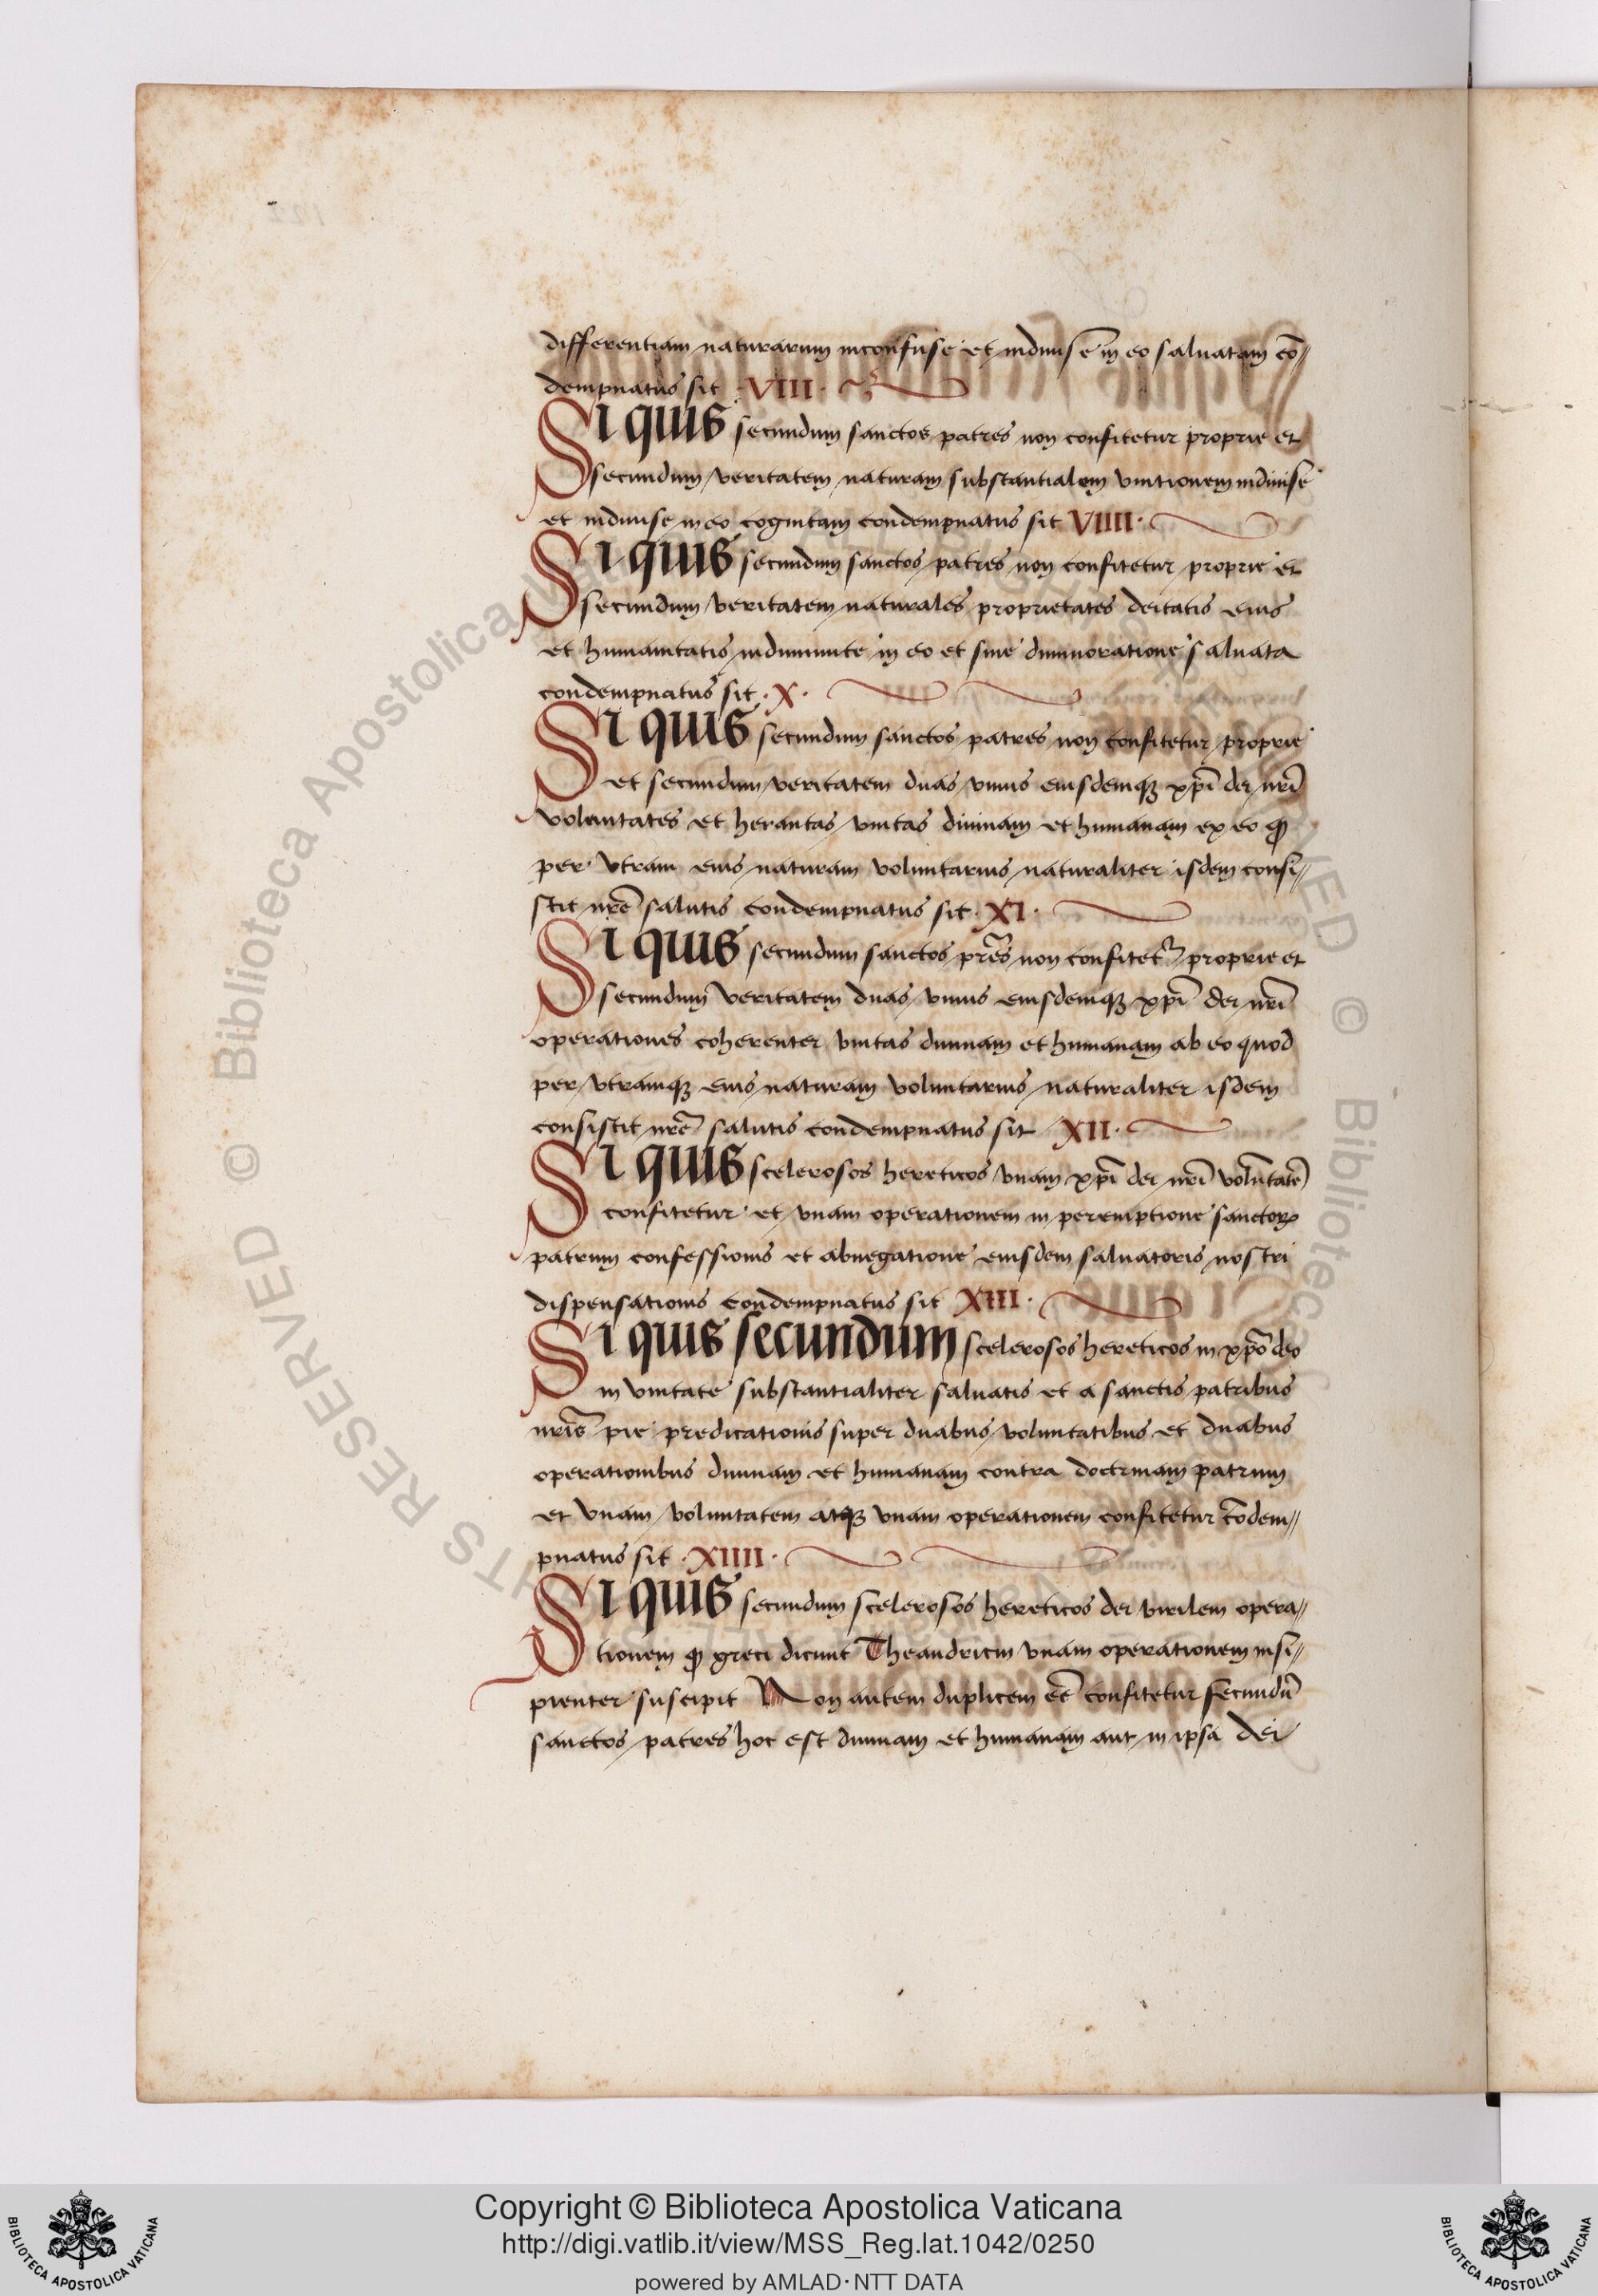 differentiam naturarum inconfuse et indiuise in eo saluatam cō〃
dempnatus sit ·VIII·
SI quis secundum sanctos patres non confitetur proprie et
secundum veritatem naturam substantialem vnitionem indiuise
et indiuise in eo cognitam condempnatus sit VIIII·
SI quis secundum sanctos patres non confitetur proprie et
secundum veritatem naturales proprietates deitatis eius
et humanitatis indiminute in eo et sine diminoratione saluata
condempnatus sit ·X·
SI quis secundum sanctos patres non confitetur proprie
et secundum veritatem duas vnius eiusdemqꝫ xp̄i dei nr̄i
voluntates et herantas vnitas diuinam et humanam ex eo ꝙ
per vtram eius naturam voluntarius naturaliter isdem consi〃
stit nr̄e salutis condempnatus sit ·XI·
SI quis secundum sanctos pr̄es non confitet᷑ proprie et
secundum veritatem duas vnius eiusdemqꝫ xp̄i dei nr̄i
operationes coherenter vnitas diuinam et humanam ab eo quod
per vtramqꝫ eius naturam voluntarius naturaliter isdem
consistit nr̄e salutis condempnatus sit XII·
SI quis scelerosos hereticos vnam xp̄i dei nr̄i volūtatē
confitetur et vnam operationem in peremptione sanctoꝝ
patrum confessionis et abnegatione eiusdem saluatoris nostri
dispensationis condempnatus sit XIII·
SI quis secundum scelerosos hereticos in xp̄o deo
in vnitate substantialiter saluatis et a sanctis patribus
nr̄is pie predicationis super duabus voluntatibus et duabus
operationibus diuinam et humanam contra doctrinam patrum
et vnam voluntatem atqꝫ vnam operationem confitetur cōdem〃
pnatus sit ·XIIII·
SI quis secundum scelerosos hereticos dei virilem opera〃
tionem ꝙ greci dicunt Theandricin vnam operationem insi〃
pienter suscipit Non autem duplicem ēē confitetur secundū
sanctos patres hoc est diuinam et humanam aut in ipsa dei
Copyright © Biblioteca Apostolica Vaticana
http://digi.vatlib.it/view/MSS_Reg.lat.1042/0250
powered by AMLAD·NTT DATA
BIBLIOTECA APOSTOLICA VATICANA
BIBLIOTECA APOSTOLICA VATICANA